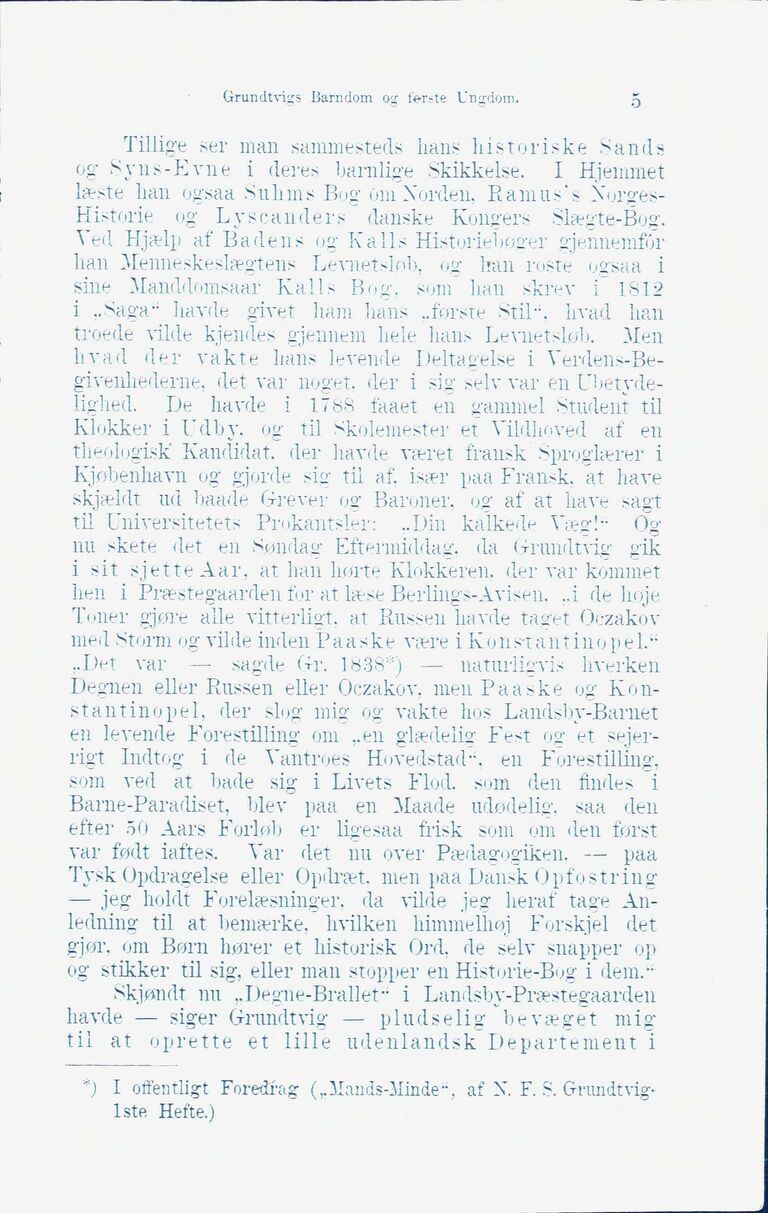 Grundtvigs Barndom og første Ungdom. 5
Tillige ser man sammesteds hans historiske Sands
og Syns-Evne i deres barnlige Skikkelse. I Hjemmet
læste han ogsaa Suhms Bog om Norden, Ramus's Norges-
Historie og Lyscanders danske Kongers Slægte-Bog.
Ved Hjælp af Badens og Kalls Historiebøger gjennemfór
han Menneskeslægtens Levnetsløb, og han roste ogsaa i
sine Manddomsaar Kalls Bog, som han skrev i 1812
i „Saga“ havde givet ham hans „første Stil“, hvad han
troede vilde kjendes gjennem hele hans Levnetsløb. Men
hvad der vakte hans levende Deltagelse i Verdens-Be-
givenhederne, det var noget, der i sig selv var en Ubetyde-
lighed. De havde i 1788 faaet en gammel Student til
Klokker i Udby, og til Skolemester et Vildhoved af en
theologisk Kandidat, der havde været fransk Sproglærer i
Kjøbenhavn og gjorde sig til af, især paa Fransk, at have
skjældt ud baade Grever og Baroner, og af at have sagt
til Universitetets Prokantsler: „Din kalkede Væg!“ Og
nu skete det en Søndag Eftermiddag, da Grundtvig gik
i sit sjette Aar, at han hørte Klokkeren, der var kommet
hen i Præstegaarden for at læse Berlings-Avisen, „i de høje
Toner gjøre alle vitterligt, at Russen havde taget Oczakov
med Storm og vilde inden Paaske være i Konstantinopel.“
„Det var — sagde Gr. 1838*) — naturligvis hverken
Degnen eller Russen eller Oczakov, men Paaske og Kon-
stantinopel, der slog mig og vakte hos Landsby-Barnet
en levende Forestilling om „en glædelig Fest og et sejer-
rigt Indtog i de Vantroes Hovedstad“, en Forestilling,
som ved at bade sig i Livets Flod, som den findes i
Barne-Paradiset, blev paa en Maade udødelig, saa den
efter 50 Aars Forløb er ligesaa frisk som om den først
var født iaftes. Var det nu over Pædagogiken, — paa
Tysk Opdragelse eller Opdræt, men paa Dansk Opfostring
— jeg holdt Forelæsninger, da vilde jeg heraf tage An-
ledning til at bemærke, hvilken himmelhøj Forskjel det
gjør, om Børn hører et historisk Ord, de selv snapper op
og stikker til sig, eller man stopper en Historie-Bog i dem.“
Skjøndt nu „Degne-Brallet“ i Landsby-Præstegaarden
havde — siger Grundtvig — pludselig bevæget mig
til at oprette et lille udenlandsk Departement i
*) I offentligt Foredrag („Mands-Minde“, af N. F. S. Grundtvig.
1ste Hefte.)